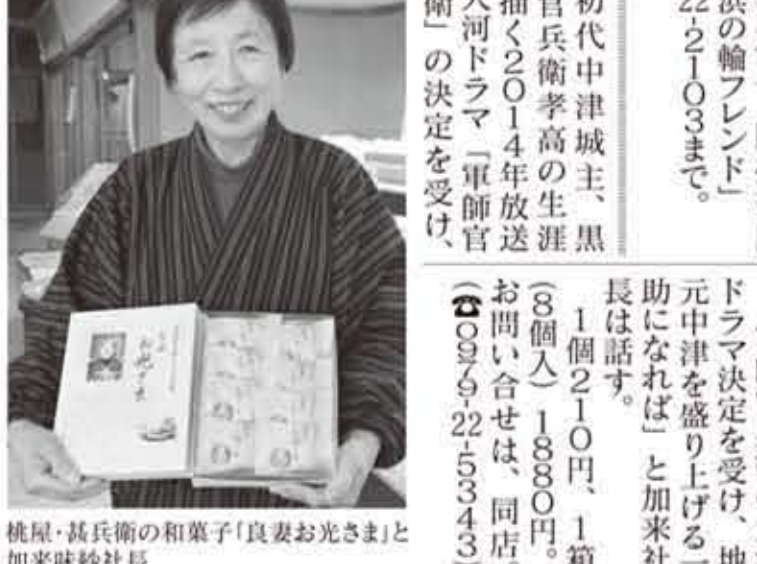 浜の輪フレンド」
22-2103まで。
初代中津城主、黒
官兵衛孝高の生涯
描く2014年放送
大河ドラマ「軍師官
衛」の決定を受け、
ドラマ決定を受け、地
元中津を盛り上げる一
助になれば」と加来社
長は話す。
1個210円、1箱
(8個入) 1880円。
お問い合せは、同店。
(☎0979-22-5343)
お光さま
桃屋・甚兵衛の和菓子「良妻お光さま」と
加来味紗社長